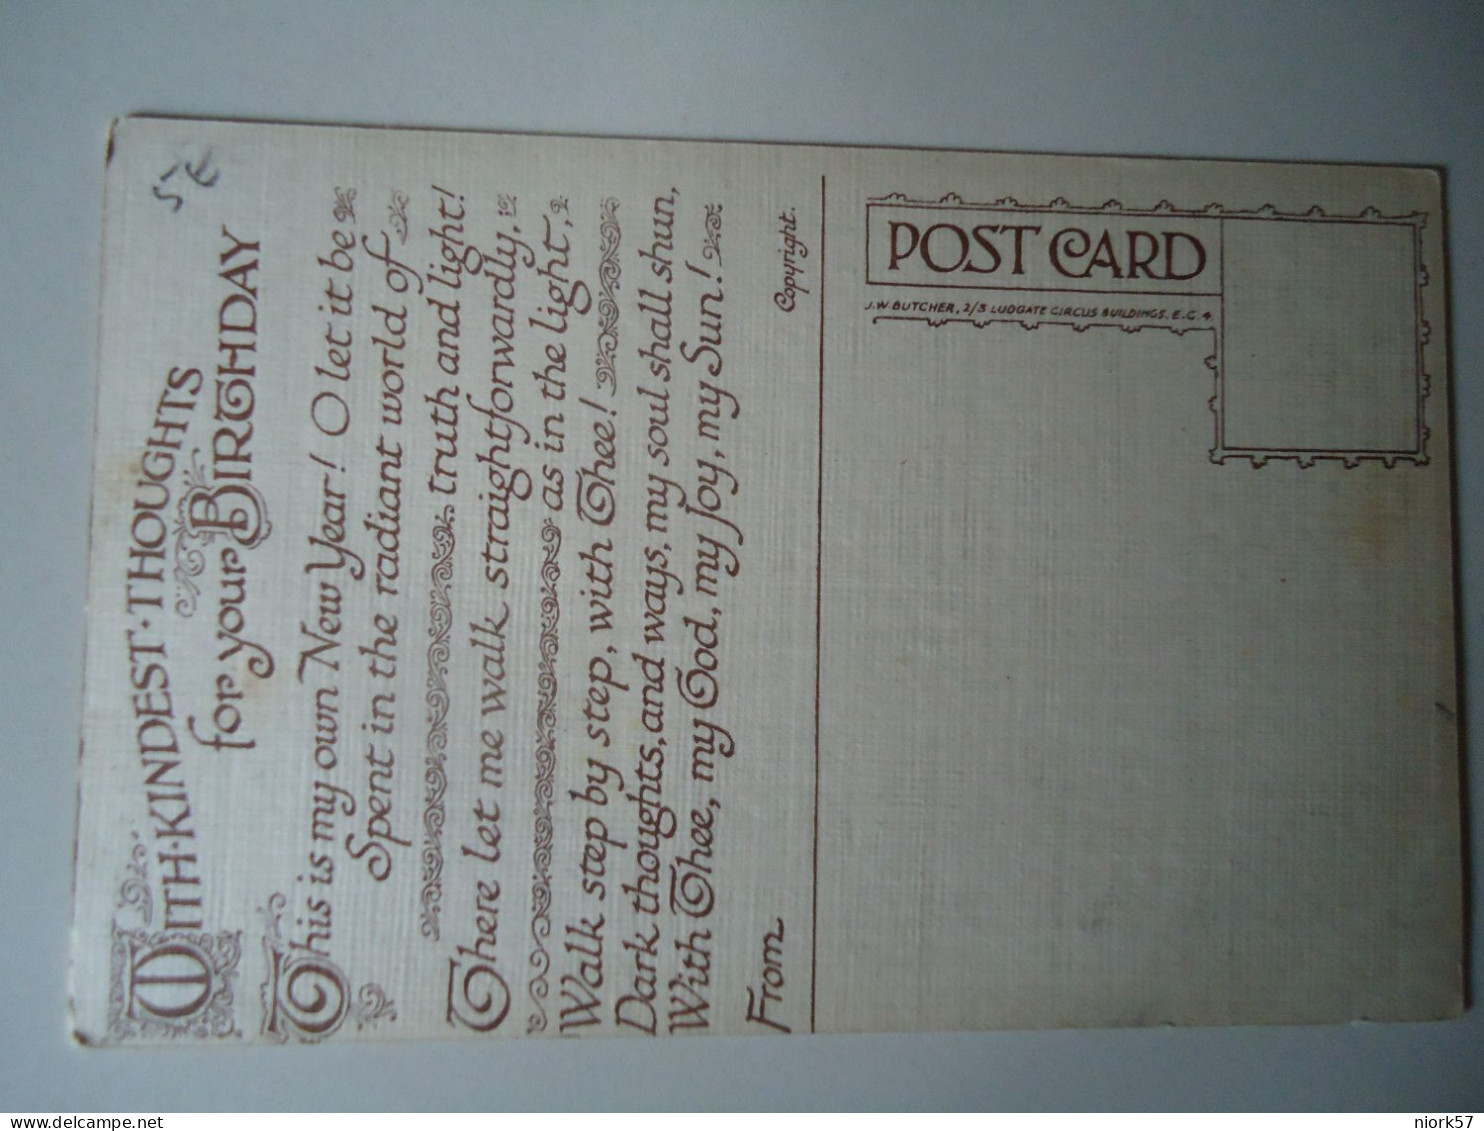 5 €
WITH·KINDEST·THOUGHTS
for your BIRTHDAY
This is my own New Year! O let it be
Spent in the radiant world of
truth and light!
There let me walk straightforwardly,
as in the light,
Walk step by step, with Thee!
Dark thoughts, and ways, my soul shall shun,
With Thee, my God, my Joy, my Sun!
From
Copyright.
POST CARD
J.W. BUTCHER, 2/3 LUDGATE CIRCUS BUILDINGS, E.C. 4.
niork57